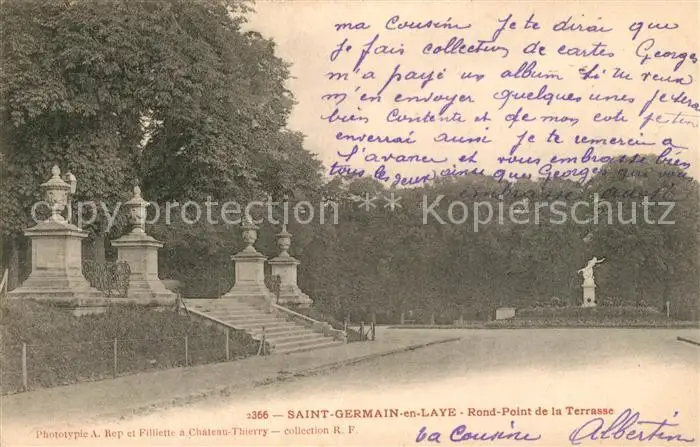 ma Cousine Je te dirai que
je fais collection de cartes Georges
m'a payé un album si tu veux
m'en envoyer quelques unes je serai
bien contente et de mon coté je t'en
enverrai aussi je te remercie à
l'avance et vous embrasse bien
tous les deux ainsi que Georges qui vous
embrasse
copy protection ** Kopierschutz
2366 – SAINT-GERMAIN-en-LAYE - Rond-Point de la Terrasse
Phototypie A. Rep et Filliette à Château-Thierry – collection R. F.
ta Cousine Albertine